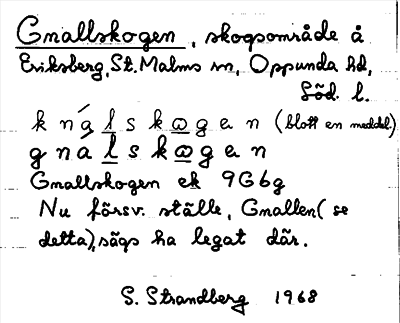 Gnallskogen, skogsområde å
Eriksberg, St. Malms sn, Oppunda hd,
Söd. l.
k n á l s k ω g e n (blott en meddel.)
g n á l s k ω g e n
Gnallskogen ek 9G6g
Nu försv. ställe, Gnallen (se
detta), sägs ha legat där.
S. Strandberg 1968